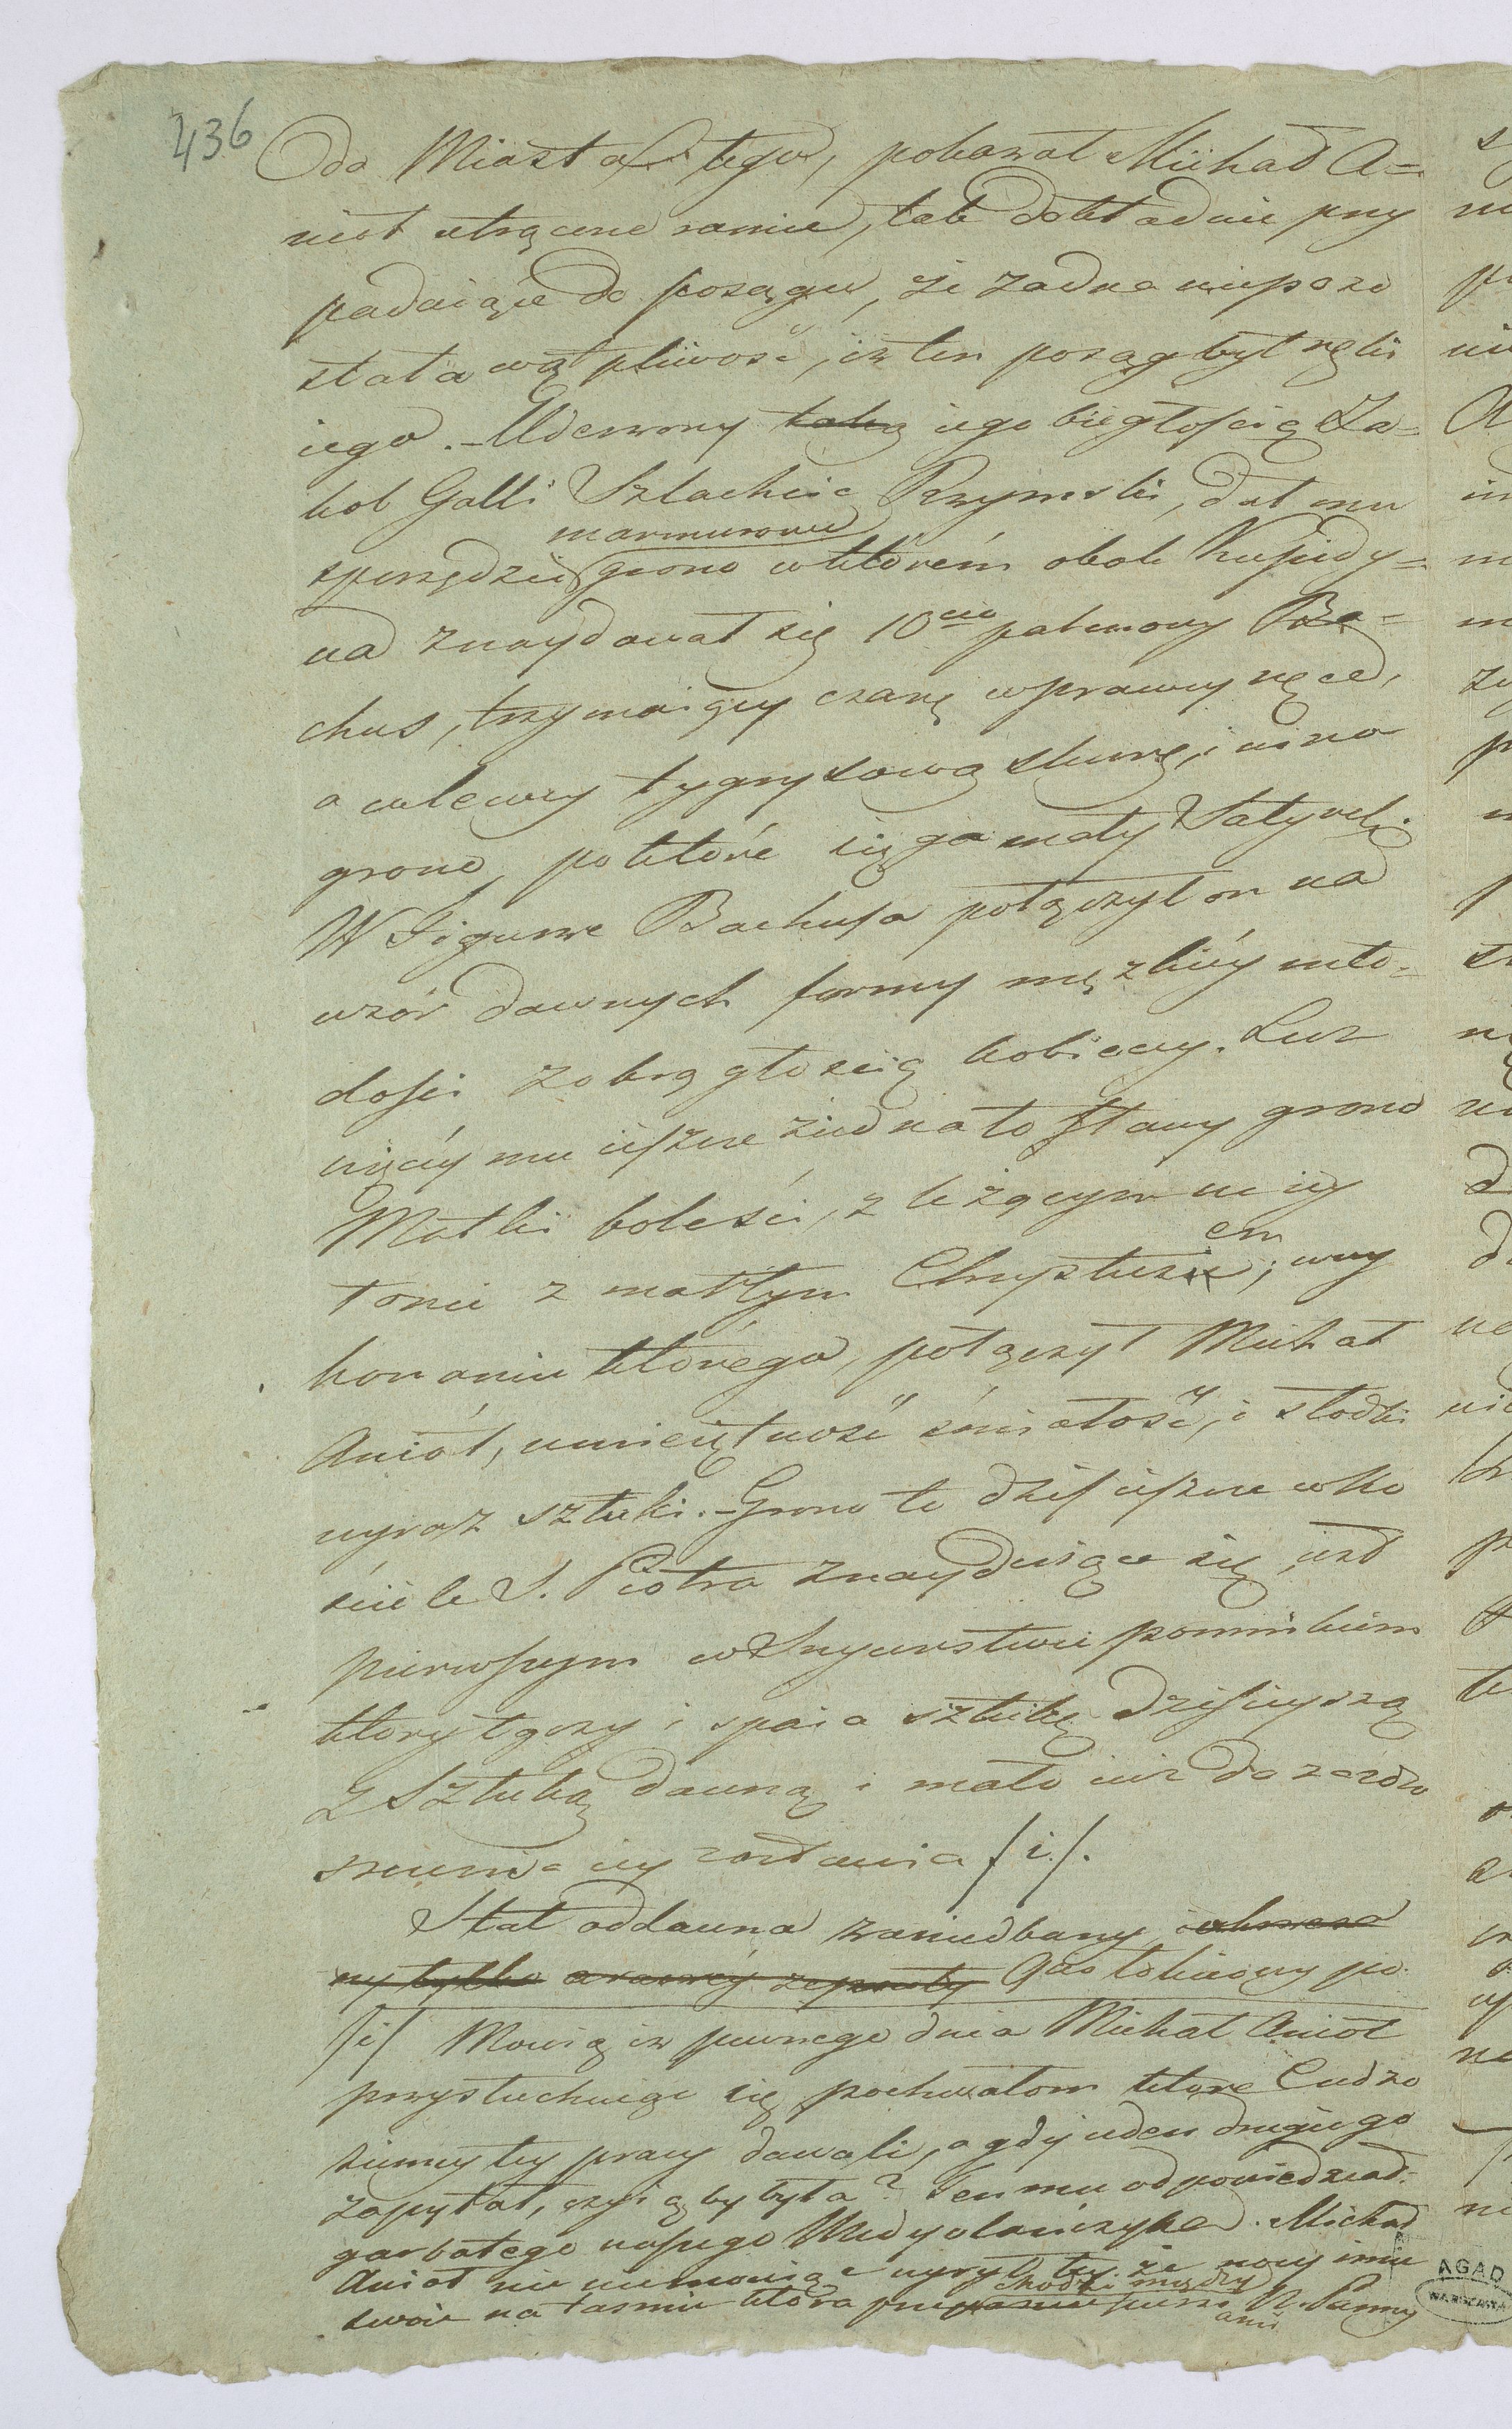 436
do Miasta tego, pokazał Michał A=
nioł utrącone ramie, tak dokładnie przy
padaiące do posągu, że żadna niepozo
stała wątpliwość, iż ten posąg był ręki
iego. – Uderzony taką iego biegłością Ja=
kob Galli Szlachcic Rzymski, dał mu
marmurowe
sporządzić grono w którém obok Kupidy=
na znaydował się 10cio palmowy Ba=
chus, trzymaiący czarę w prawey ręce,
a w lewey tygrysową skurę, i wina
grono, po które sięga mały Satyrek.
W Figurze Bachusa połączył on na
wzór dawnych formy męzkiéy mło=
dości z okrągłością kobiecey. Lecz
więcéy mu ieszcze ziednało sławy grono
Matki boleści, z leżącym na iey
łonie zmarłym Chrystusem; w wy
konaniu którégo, połączył Michał
Anioł, umieiętność śmiałość, i słodki
wyraz sztuki. – Grono to dziś ieszcze w Ko
ściele S. Piotra znayduiące się, iest
pierwszym w Snycerstwie pomnikiem
który łączy i spaia sztukę dzisieyszą
z Sztuką dawną i mało iuż do
iey zostawia /i/.
Stał oddawna zaniedbany
ny tylko a raczéy zepsuty 9cio łokciowy po
/i/ Mowią iż pewnego dnia Michał Anioł
przysłuchuiąc się pochwałom które Cudzo
ziemcy tey pracy dawali, a gdy ieden drugiego
zapytał, czyią by była? Ten mu odpowiedział:
garbatego naszego Medyolańczyka. Michał
Anioł nic niemowiąc wyrył tey że nocy imie
chodzi między
swoie na taśmie która piersi N. Panny
AGAD
WARSZAWA